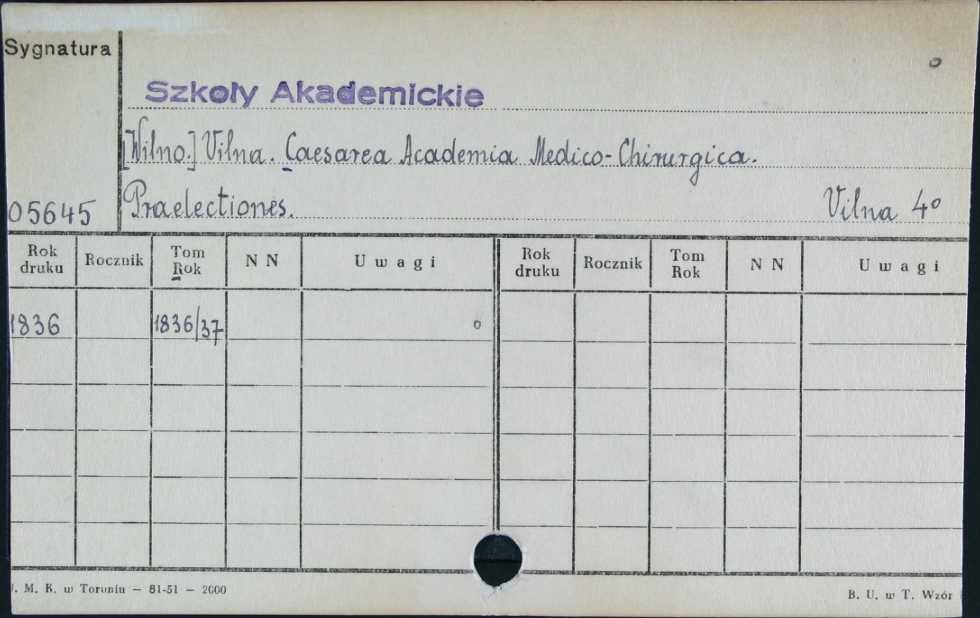 Sygnatura
o
Szkoły Akademickie
[Wilno.] Vilna. Caesarea Academia Medico-Chirurgica.
05645 Praelectiones. Vilna 4º
Rok druku Rocznik Tom Rok N N Uwagi Rok druku Rocznik Tom Rok N N Uwagi
1836 1836/37 o
. M. K. w Toruniu — 81-51 — 2000 B. U. w T. Wzór